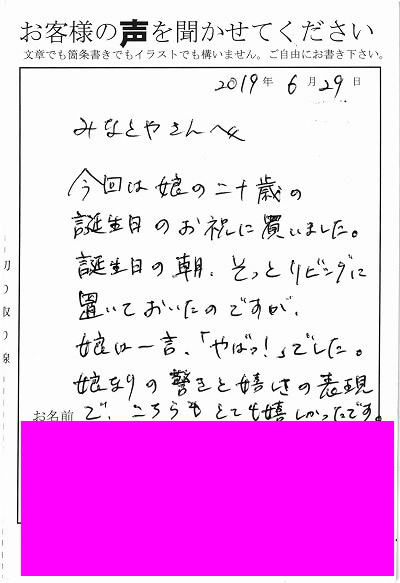 お客様の声を聞かせてください
文章でも箇条書きでもイラストでも構いません。ご自由にお書き下さい。
2019年 6月29日
みなとやさんへ
今回は娘の二十歳の
誕生日のお祝に買いました。
誕生日の朝、そっとリビングに
置いておいたのですが、
娘は一言、「やばっ!」でした。
娘なりの驚きと嬉しさの表現
で、こちらもとても嬉しかったです。
お名前
切り取り線